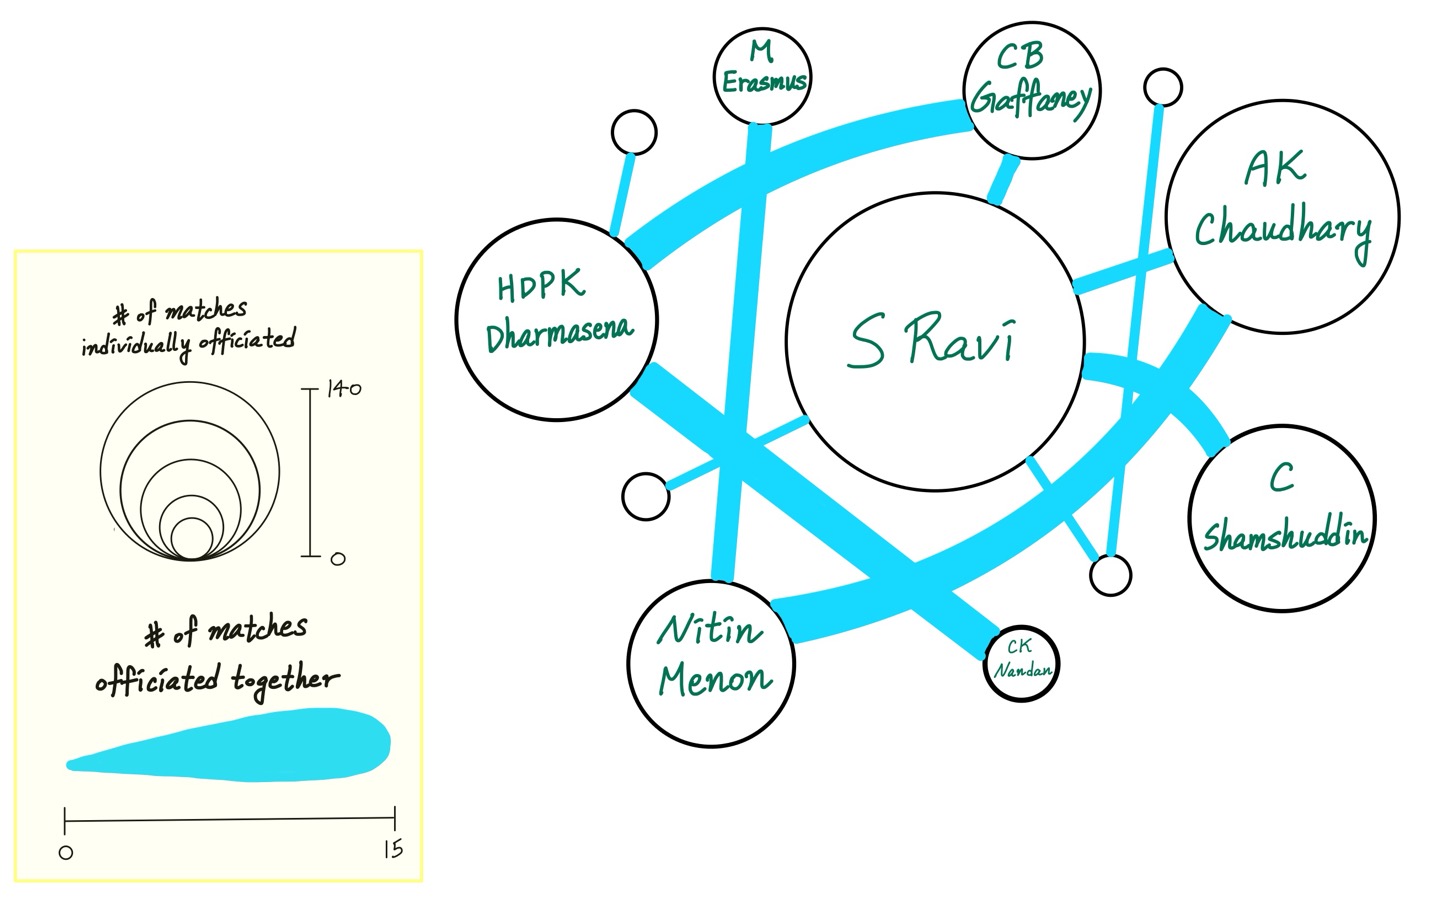 # of matches
individually officiated
140
0
# of matches
officiated together
0
15
M
Erasmus
CB
Gaffaney
AK
Chaudhary
HDPK
Dharmasena
S Ravi
C
Shamshuddin
Nitin
Menon
CK
Nandan